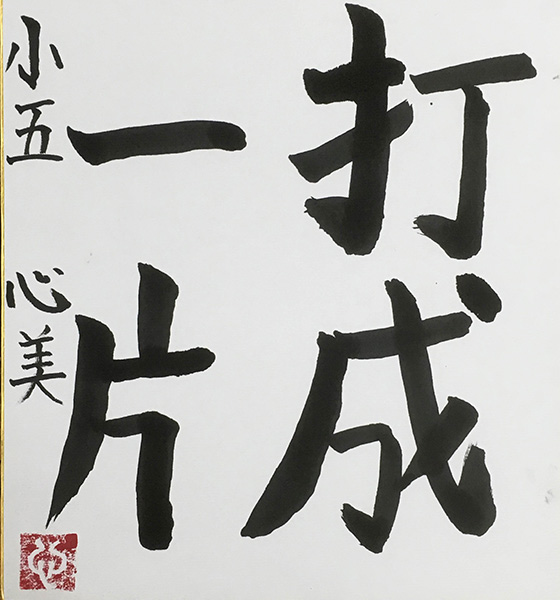 打成
一片
小五 心美